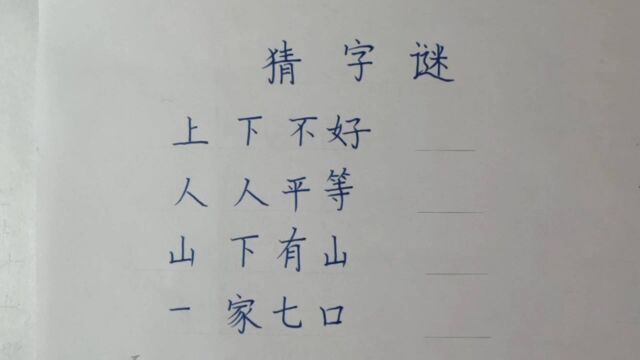 猜字谜
上下不好
人人平等
山下有山
一家七口